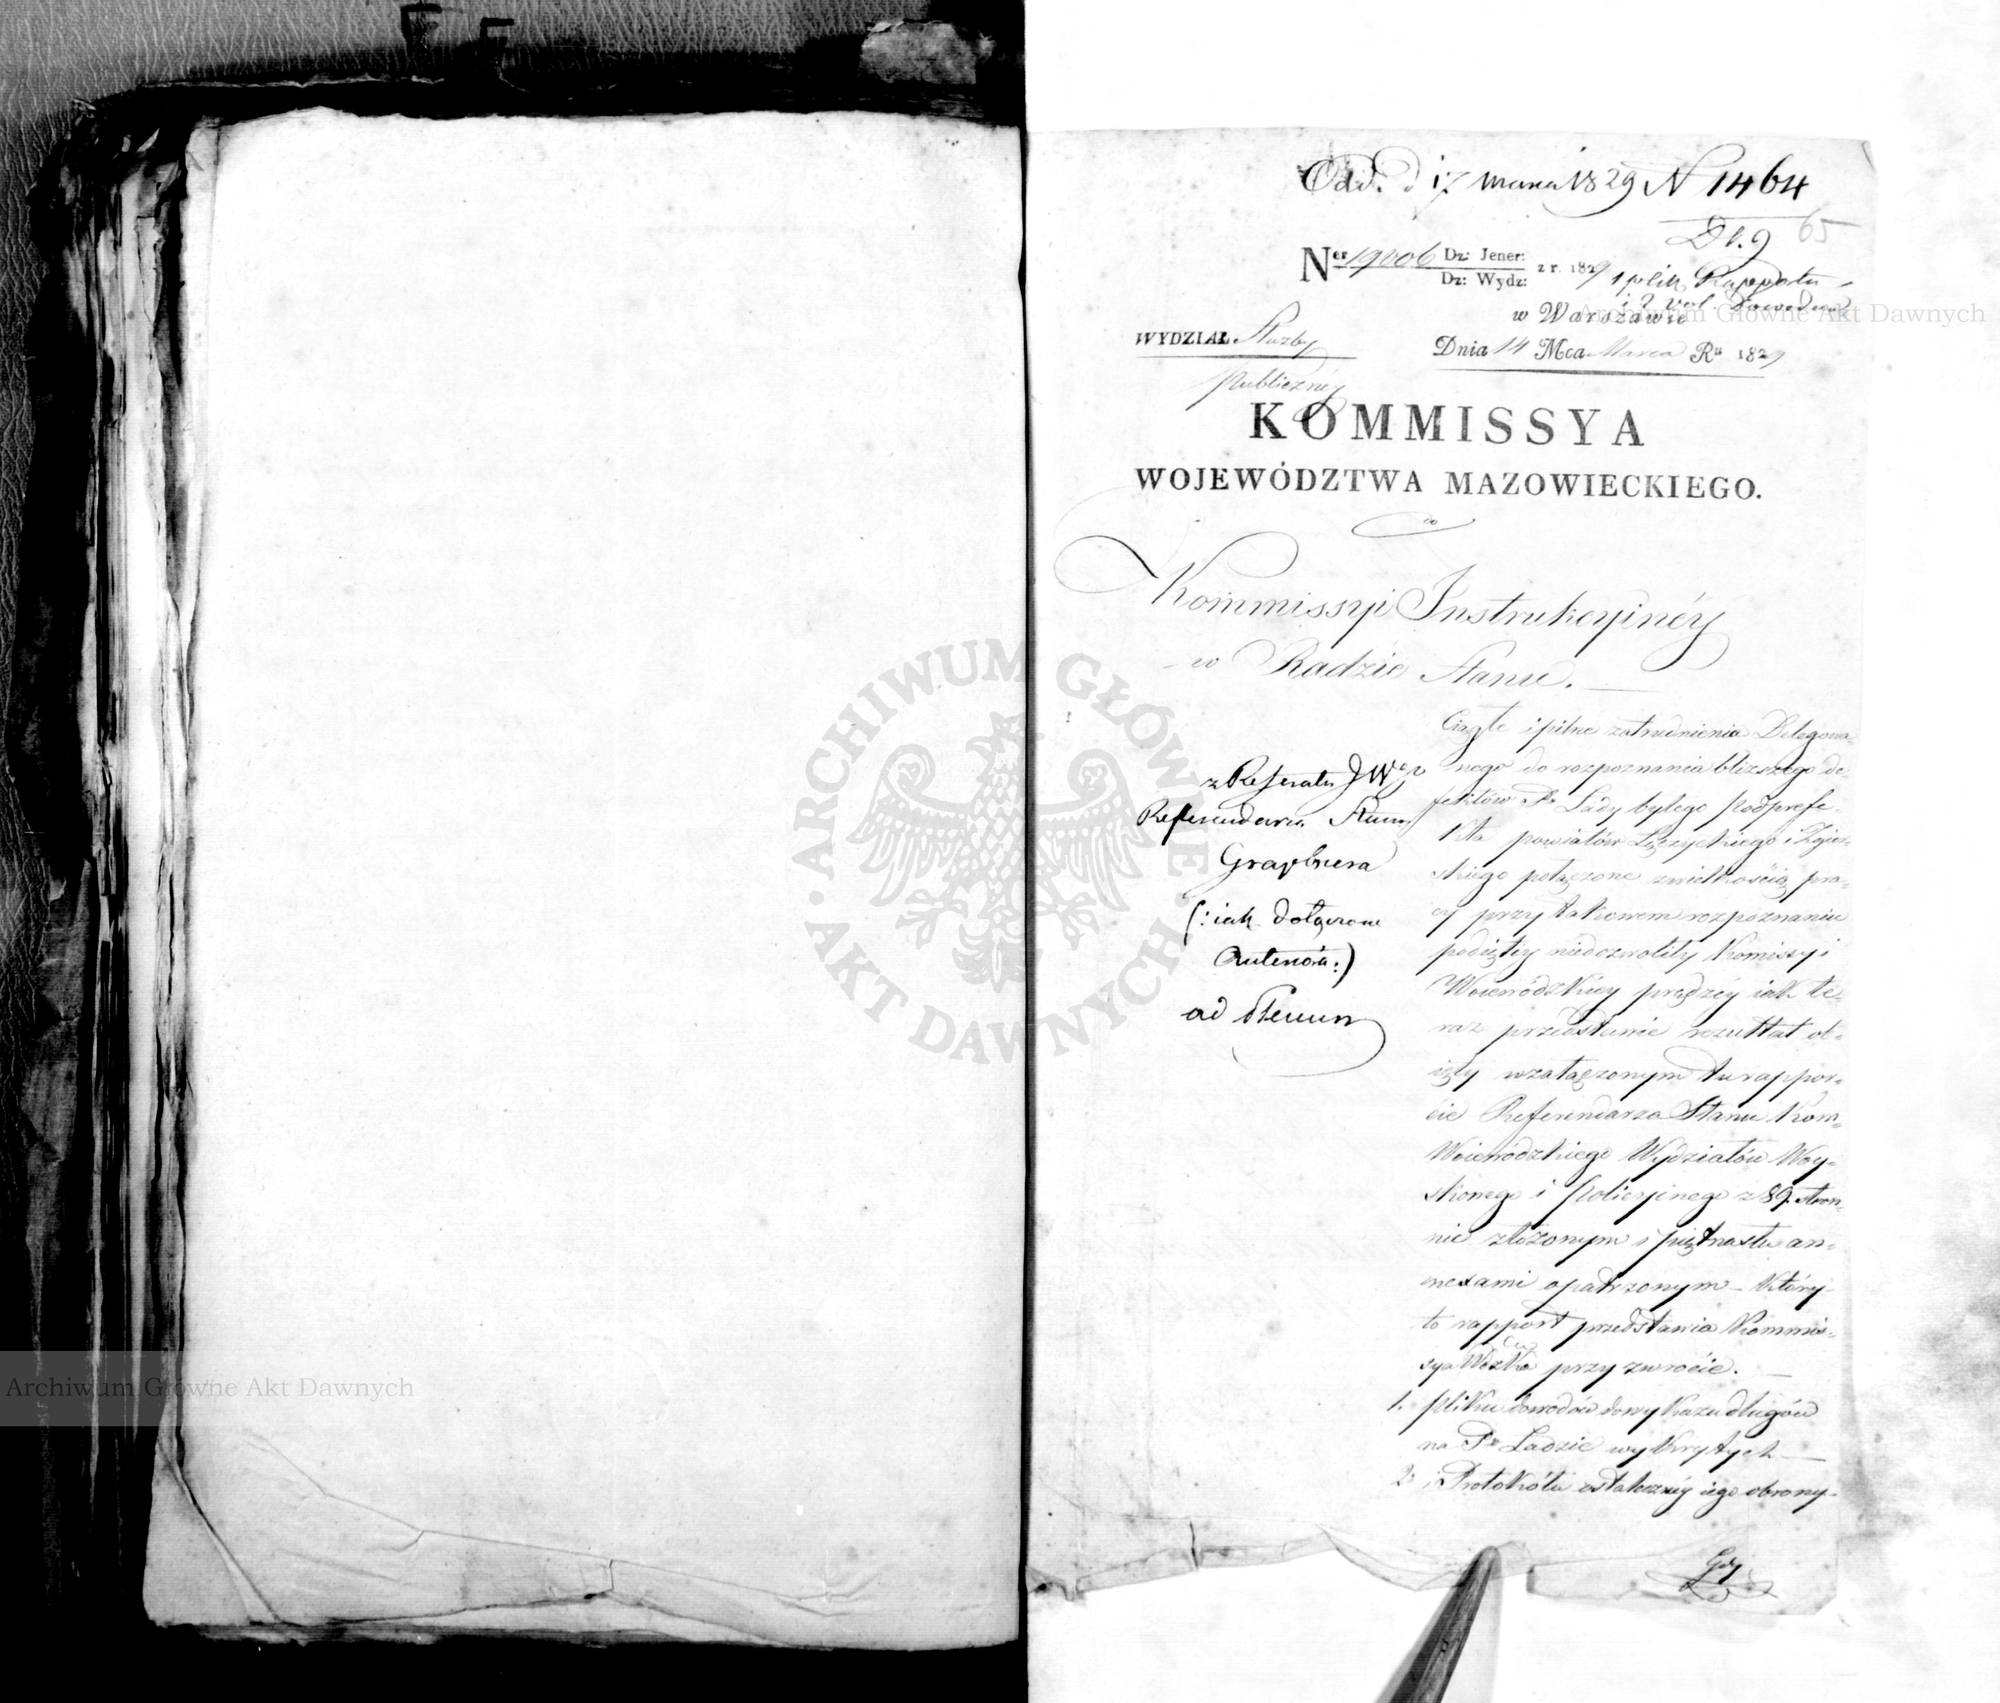 Odd. d 17 marca 1829 N 1464
65
Dz. 9
N er 19806 Dz: Jener:
Dz: Wydz: z r. 1829
1 plik Rapportu
i 2 vol Dowodów
w Warszawie
WYDZIAŁ Służby
Publicznéy
Dnia 14 Mca Marca Ru 1829
KOMMISSYA
WOJEWÓDZTWA MAZOWIECKIEGO.
do
Kommissyi Instrukcyinéy
w Radzie Stanu.
z Referatu JWgo
Referendarza Stanu
Graybnera
(: iak dołączone
Anteriora :)
ad Plenum
Ciągłe i pilne zatrudnienia Delegowa-
nego do rozpoznania bliższego de-
fektów Pa Lady byłego Podprefe-
kta powiatów Łęczyckiego i Zgier-
skiego połączone z wielkością pra-
cy przy takowem rozpoznaniu
podiętey niedozwoliły Komissyi
Woiewódzkiéy prędzéy iak te-
raz przedstawić rezultat ob-
ięty w załączonym tu rappor-
cie Referendarza Stanu Kom-
Woiewódzkiego Wydziałów Woy-
skowego i Policyinego z 89. stron-
nic złożonym i piętnastu an-
nexami opatrzonym – który
to rapport przedstawia Kommis-
sya Wdzka przy zwrocie.
1. pliku dowodów do wykazu długów
na Pu Ladzie wykrytych
2. i Protokółu ostateczney iego obrony
Gdy
Archiwum Główne Akt Dawnych
Archiwum Główne Akt Dawnych
ARCHIWUM GŁÓWNE AKT DAWNYCH